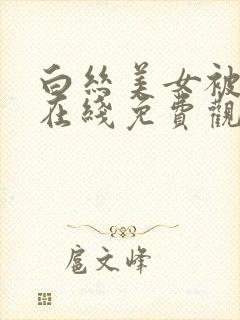 白丝美女被
在线免費觀
扈文峰